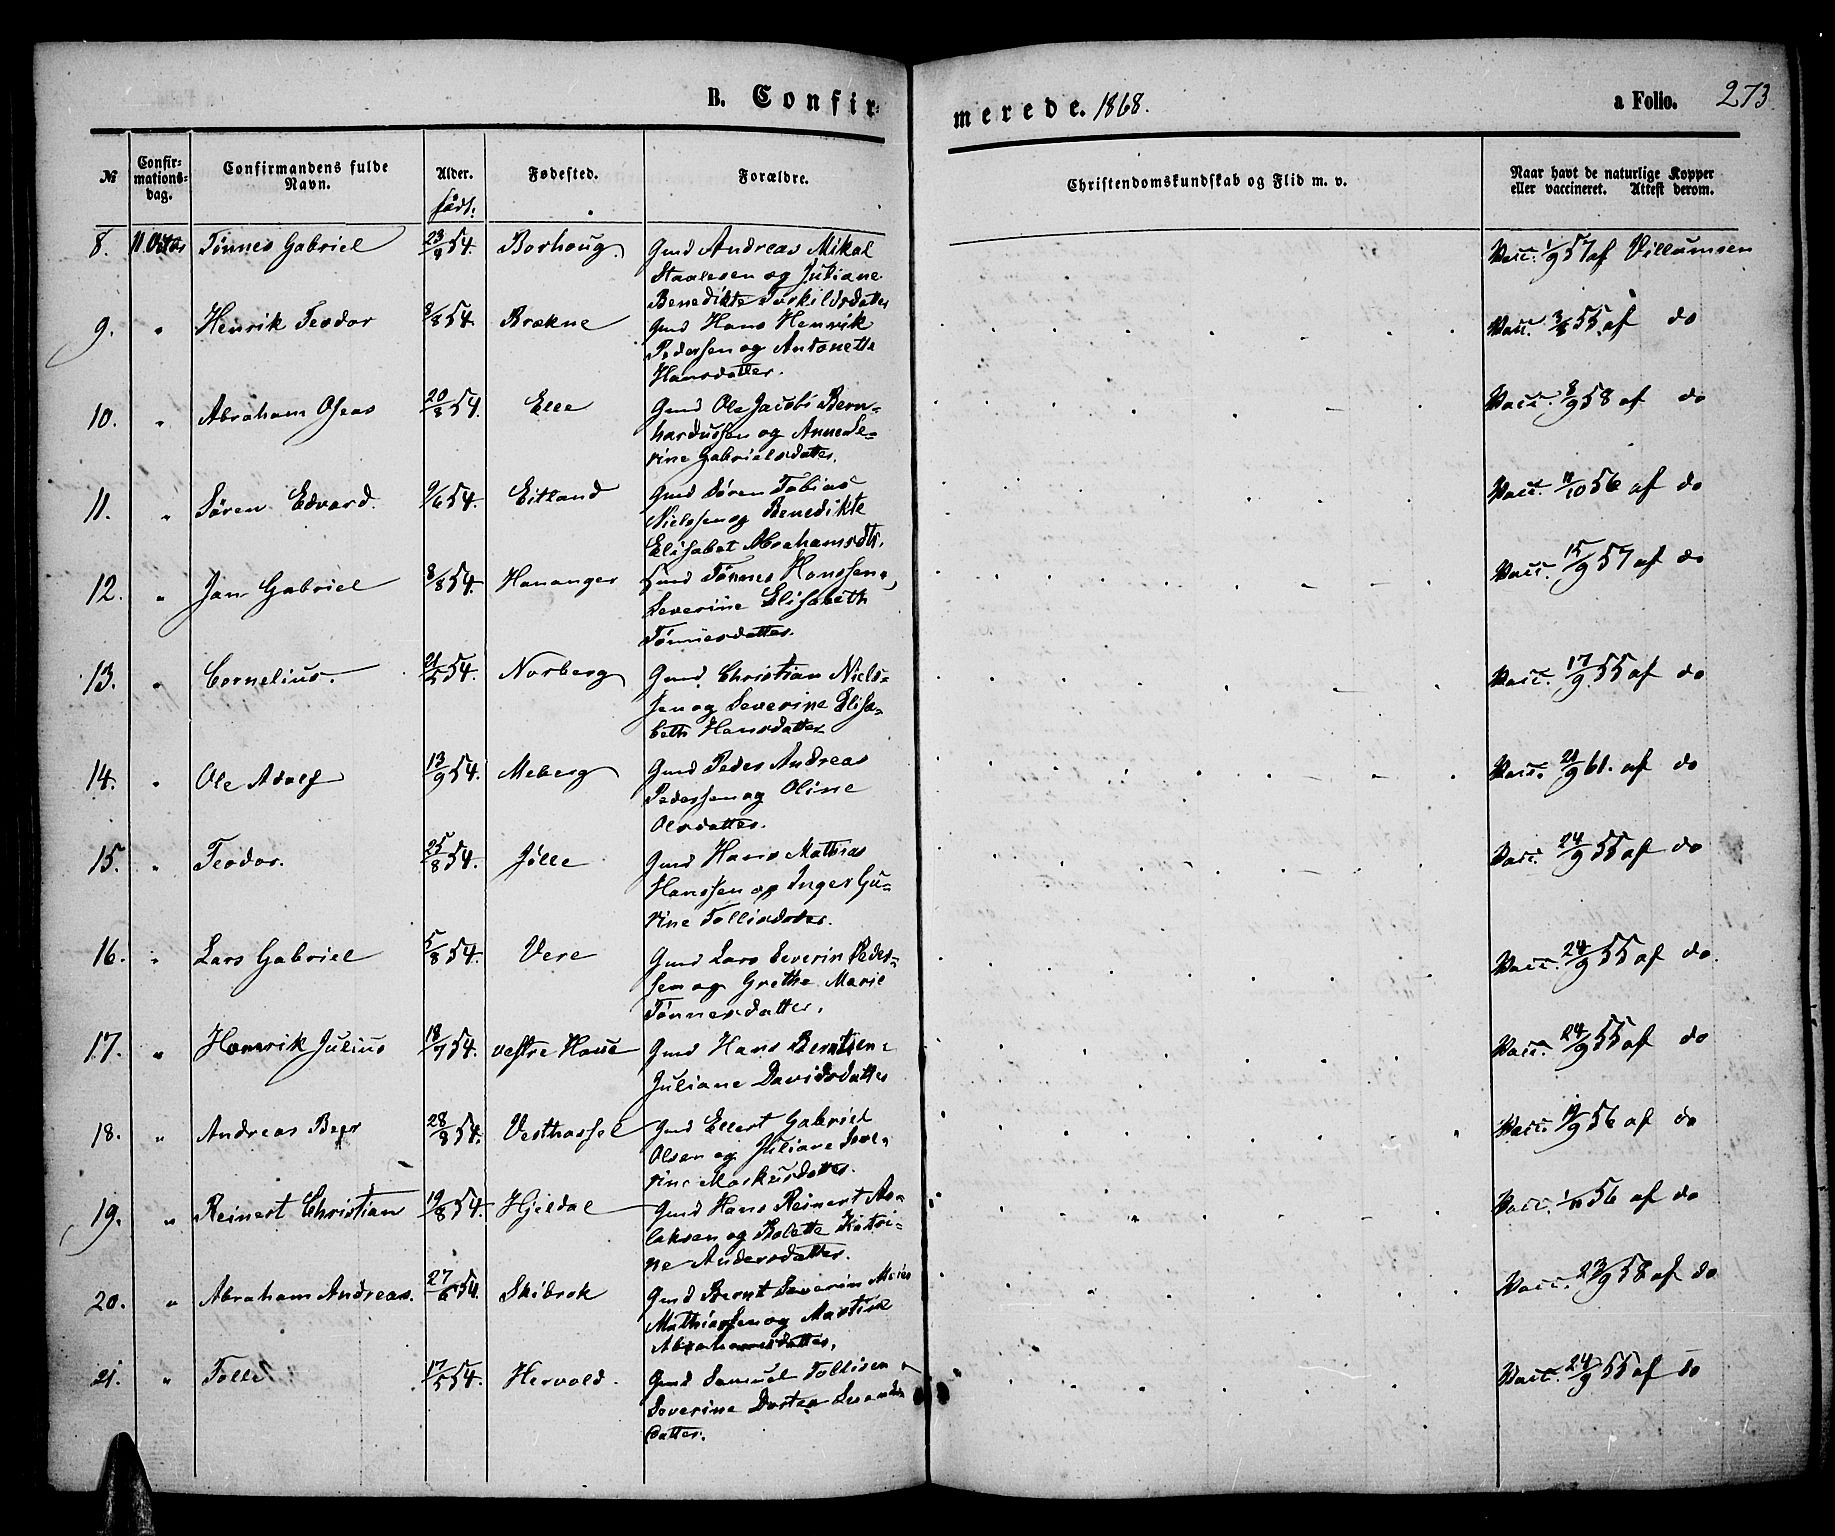 B. Confir-
merede. 1868.
a Folio. 273
№
Confir-
mations-
dag.
Confirmandens fulde
Navn.
Alder.
født.
Fødested.
Forældre.
Christendomskundskab og Flid m. v.
Naar havt de naturlige Kopper
eller vaccineret. Attest derom.
8. Tønnes Gabriel 23/9 54. Borhoug Gmd Andreas Mikal
Staalesen og Juliane
Benedikte Torkildsdatter
Vacc. 1/9 57 af Villumsen
9. " Henrik Teodor 8/8 54. Brækne Gmd Hans Henrik
Pedersen og Antonette
Hansdatter.
Vacc. 3/8 55. af do
10. " Abraham Oseas 20/8 54. Elle Gmd Ole Jacobi Bern-
hardussen og Anne Se-
rine Gabrielsdatter.
Vacc. 8/9 58 af do
11. " Søren Edvard. 9/6 54. Eitland Gmd Søren Tobias
Nielssen og Benedikte
Elisabet Abrahamsdtr.
Vacc. 11/10 56 af do
12. " Jan Gabriel 8/8 54. Hananger Gmd Tønnes Hanssen,
Severine Elisabeth
Tønnesdatter.
Vacc. 15/9 57 af do
13. " Cornelius. 21/5 54. Norberg Gmd. Christian Niels-
sen og Severine Elisa-
beth Hansdatter
Vacc. 17/9 55 af do
14. " Ole Adolf 13/9 54. Meberg Gmd Peder Andreas
Pedersen og Oline
Olsdatter.
Vacc. 21/9 61. af do
15. " Teodor. 25/8 54. Jølle Gmd Hans Mathias
Hanssen og Inger Gu-
rine Tollisdatter.
Vacc. 24/9 55 af do
16. " Lars Gabriel 5/8 54. Vere Gmd Lars Severin Peder-
sen og Grethe Marie
Tønnesdatter.
Vacc. 24/9 55 af do.
17. " Henrik Julius 18/7 54. vestre Haue Gmd Hans Berntsen-
Juliane Davidsdatter
Vacc. 24/9 55 af do
18. " Andreas 28/8 54. Vesthassel Gmd Ellert Gabriel
Olsen og Juliane Seve-
rine Markusdatter.
Vacc. 19/9 56 af do
19. " Reinert Christian 19/8 54. Hjeldal Gmd Hans Reinert As-
laksen og Bolette Katri-
ne Andersdatter.
Vacc. 1/10 56 af do
20. " Abraham Andreas. 27/6 54. Skibrok Gmd Bernt Severin
Mathiassen og Martine
Abrahamsdatter.
Vacc. 23/9 58 af do
21. " Tolle 17/5 54. Hervold. Gmd Samuel Tollisen
Severine Dortea
datter.
Vacc. 24/9 55 af do